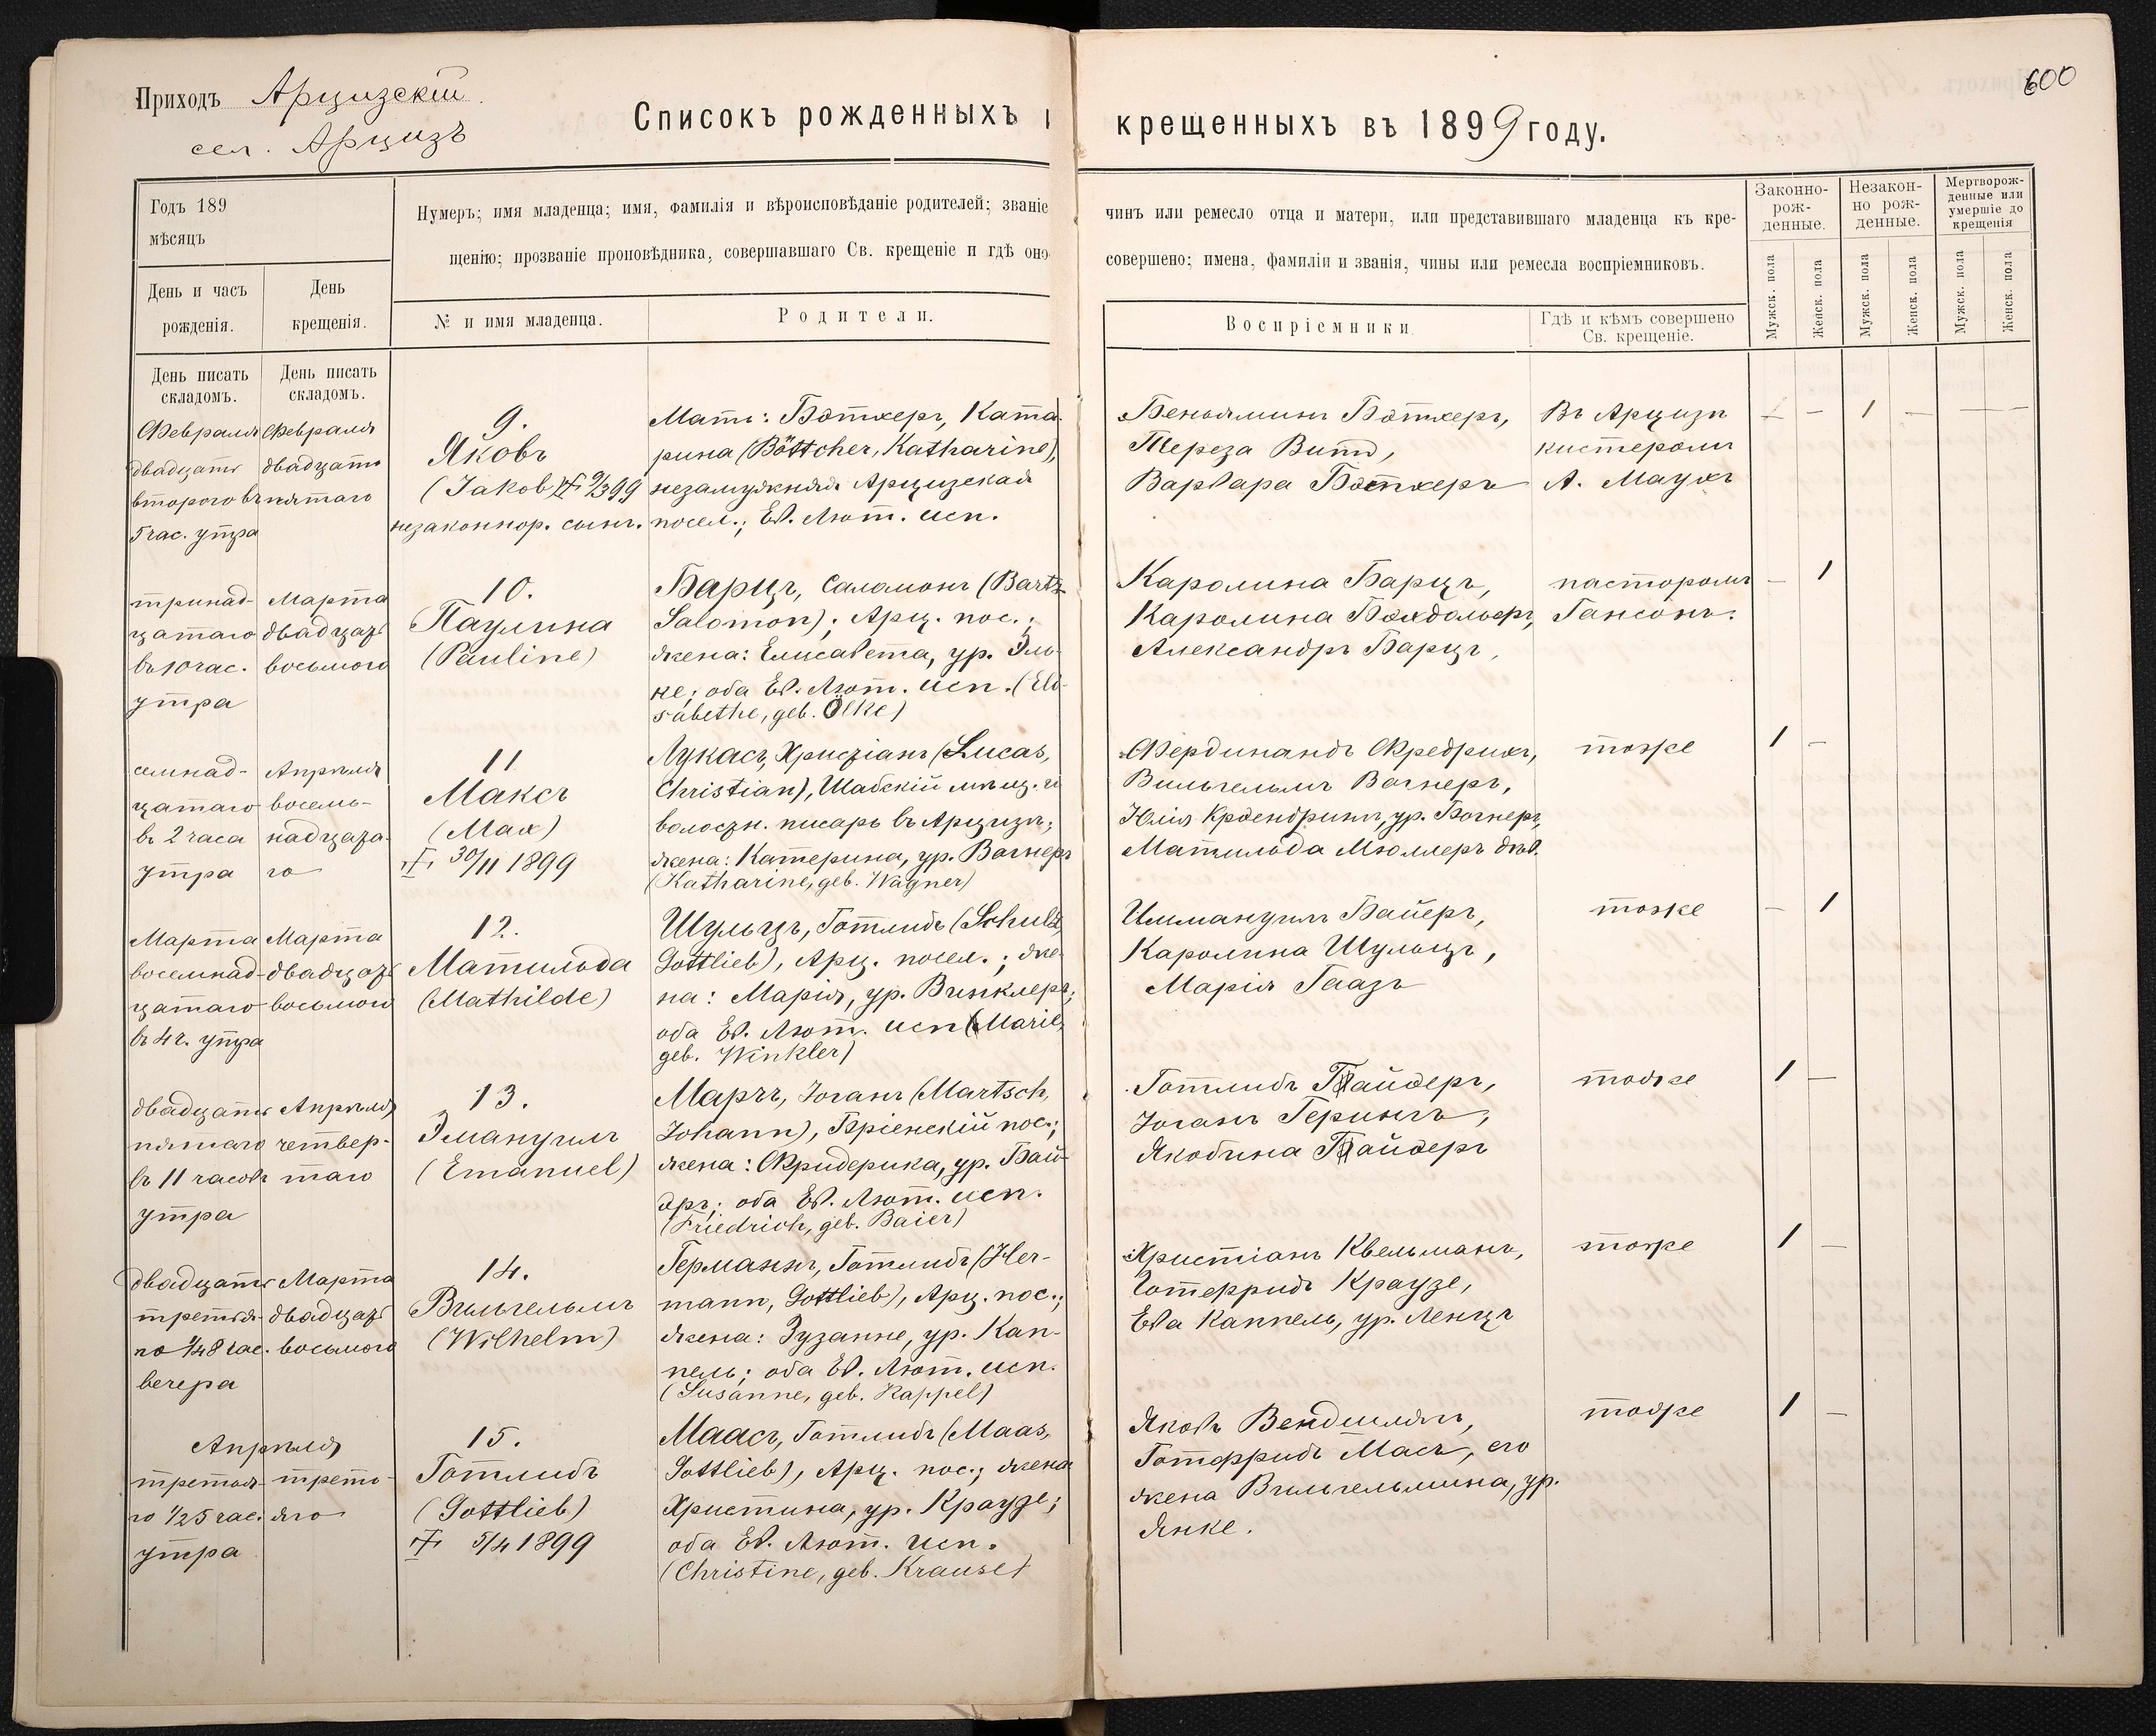 Приходъ Арцизскій.
сел. Арцизъ
600
Списокъ рожденныхъ и крещенныхъ въ 1899 году.
Годъ 189
мѣсяцъ
День и часъ
рожденія.
День
крещенія.
Нумеръ; имя младенца; имя, фамилія и вѣроисповѣданіе родителей; званіе чинъ или ремесло отца и матери, или представившаго младенца къ кре-
щенію; прозваніе проповѣдника, совершавшаго Св. крещеніе и гдѣ оно совершено; имена, фамиліи и званія, чины или ремесла воспріемниковъ.
№ и имя младенца.
Родители.
Воспріемники.
Гдѣ и кѣмъ совершено
Св. крещеніе.
Законно-
рож-
денные.
Незакон-
но рож-
денные.
Мертворож-
денные или
умершіе до
крещенія
Мужск. пола
Женск. пола
Мужск. пола
Женск. пола
Мужск. пола
Женск. пола
День писать
складомъ.
День писать
складомъ.
Февраля
двадцать
второго въ
5 час. утра
Февраля
двадцать
пятаго
9.
Яковъ
(Jakob) 9/3 99
незаконнор. сынъ.
Мать: Бэтхеръ, Ката-
рина (Böttcher, Katharine),
незамужняя Арцизская
посел.; Ев. Лют. исп.
Беньяминъ Бэтхеръ,
Тереза Витт,
Варвара Бэтхеръ
Въ Арцизѣ
кистеромъ
А. Маухъ
— — 1 — — —
тринад-
цатаго
въ 10 час.
утра
Марта
двадцать
восьмого
10.
Паулина
(Pauline)
Барцъ, Саламонъ (Bartz
Salomon); Арц. пос.;
жена: Елисавета, ур. Эль-
ке; оба Ев. Лют. исп. (Eli-
sabethe, geb. Ölke)
Каролина Барцъ,
Каролина Бохдольеръ,
Александръ Барцъ,
пасторомъ
Гансонъ.
— 1
семнад-
цатаго
въ 2 часа
утра
Апрѣля
восем-
надцата-
го
11
Максъ
(Max)
30/11 1899
Лукасъ, Христіанъ (Lucas,
Christian), Шабскій мѣщ. и
волостн. писарь въ Арцизѣ;
жена: Катерина, ур. Вагнеръ
(Katharine, geb. Wagner)
Фердинандъ Фредрихъ,
Вильгельмъ Вагнеръ,
Юлія ур. Вагнеръ,
Матильда Мюллеръ дѣв.
тоже
1 —
Марта
восемнад-
цатаго
въ 4 ч. утра
Марта
двадцать
восьмого
12.
Матильда
(Mathilde)
Шульцъ, Готлибъ (Schulz,
Gottlieb), Арц. посел.; же-
на: Марія, ур. Винклеръ;
оба Ев. Лют. исп (Marie,
geb. Winkler)
Иммануилъ Байеръ,
Каролина Шульцъ,
Марія Гаазъ
тоже
— 1
двадцать
пятаго
въ 11 часовъ
утра
Апрѣля
четвер-
таго
13.
Эмануилъ
(Emanuel)
Марчъ, Іоганъ (Martsch,
Johann), Бріенскій пос.;
жена: Фридерика, ур. Бай-
эръ; оба Ев. Лют. исп.
(Friedrich, geb. Baier)
Готлибъ Байэеръ,
Іоганъ Герингъ,
Якобина Байэеръ
тоже
1 —
двадцать
третья-
го 1/4 8 час.
вечера
Марта
двадцать
восьмого
14.
Вильгельмъ
(Wilhelm)
Германнъ, Готлибъ (Her-
mann, Gottlieb), Арц. пос.;
жена: Зузанне, ур. Кап-
пель; оба Ев. Лют. исп.
(Susanne, geb. Kappel)
Христіанъ Квельманъ,
Готфридъ Краузе,
Ева Каппель, ур. Ленцъ
тоже
1 —
Апрѣля
третья-
го 1/2 5 час.
утра
треть-
яго
15.
Готлибъ
(Gottlieb)
5/4 1899
Маасъ, Готлибъ (Maas,
Gottlieb), Арц. пос.; жена
Христина, ур. Краузе;
оба Ев. Лют. исп.
(Christine, geb. Krause)
Яковъ Вендшлягъ,
Готфридъ Масъ, его
жена Вильгельмина, ур.
Янке.
тоже
1 —